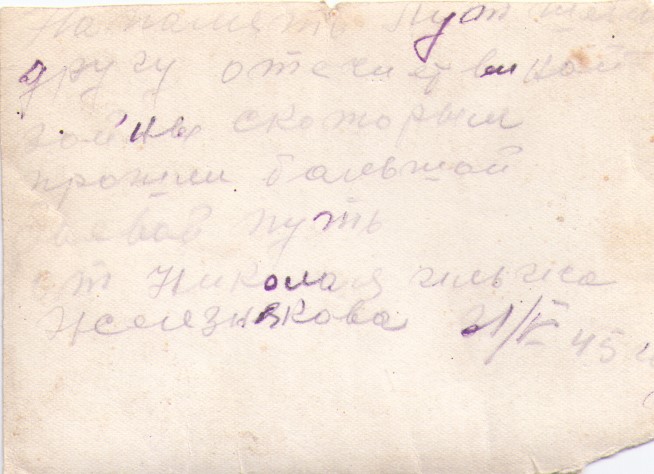 На память
другу отечественной
войны скоторым
прошли большой
боевой путь
от Николая
Железнякова 21/V 45 г